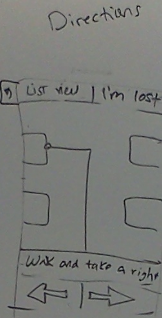 Directions
List view | I'm lost
Walk and take a right